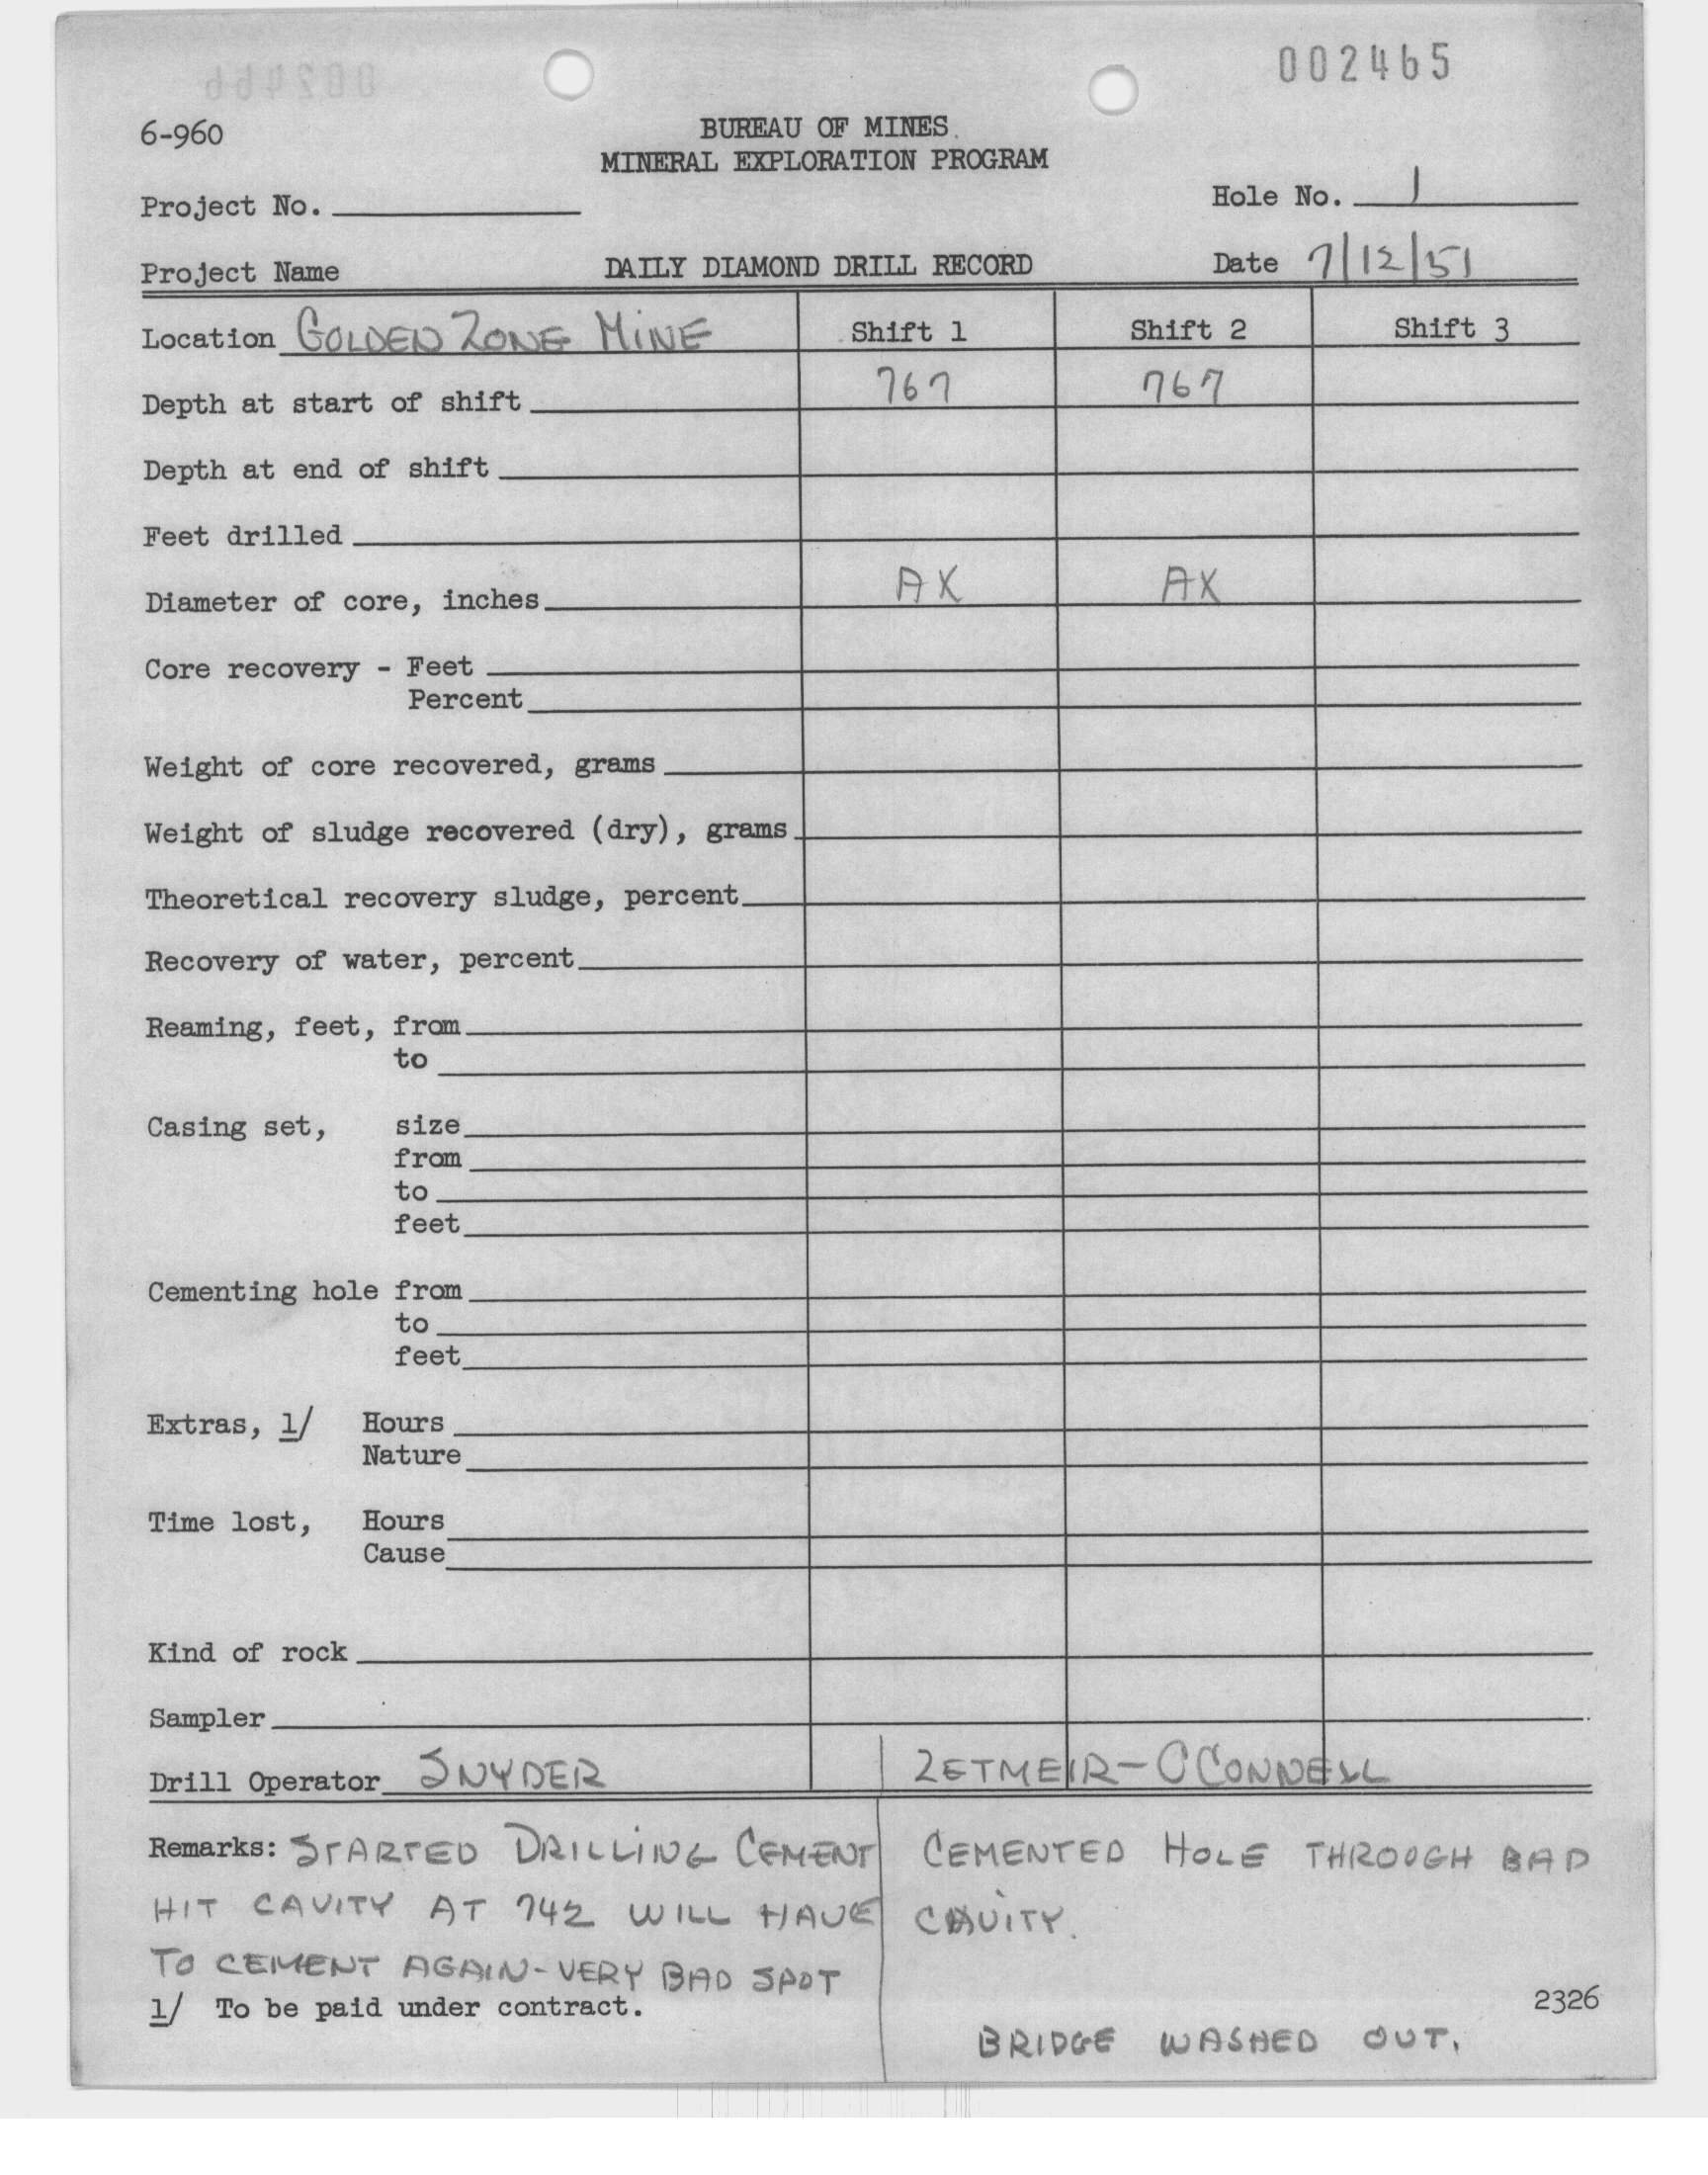 002465
6-960
BUREAU OF MINES
MINERAL EXPLORATION PROGRAM
Project No.
Hole No. 1
Project Name
DAILY DIAMOND DRILL RECORD
Date 7/12/51
Location GOLDEN ZONE MINE Shift 1 Shift 2 Shift 3
Depth at start of shift 767 767
Depth at end of shift
Feet drilled
Diameter of core, inches AX AX
Core recovery - Feet
Percent
Weight of core recovered, grams
Weight of sludge recovered (dry), grams
Theoretical recovery sludge, percent
Recovery of water, percent
Reaming, feet, from
to
Casing set, size
from
to
feet
Cementing hole from
to
feet
Extras, 1/ Hours
Nature
Time lost, Hours
Cause
Kind of rock
Sampler
Drill Operator SNYDER ZETMEIR-OCONNELL
Remarks: STARTED DRILLING CEMENT
HIT CAVITY AT 742 WILL HAVE
TO CEMENT AGAIN-VERY BAD SPOT
CEMENTED HOLE THROUGH BAD
CAVITY.
1/ To be paid under contract.
2326
BRIDGE WASHED OUT.